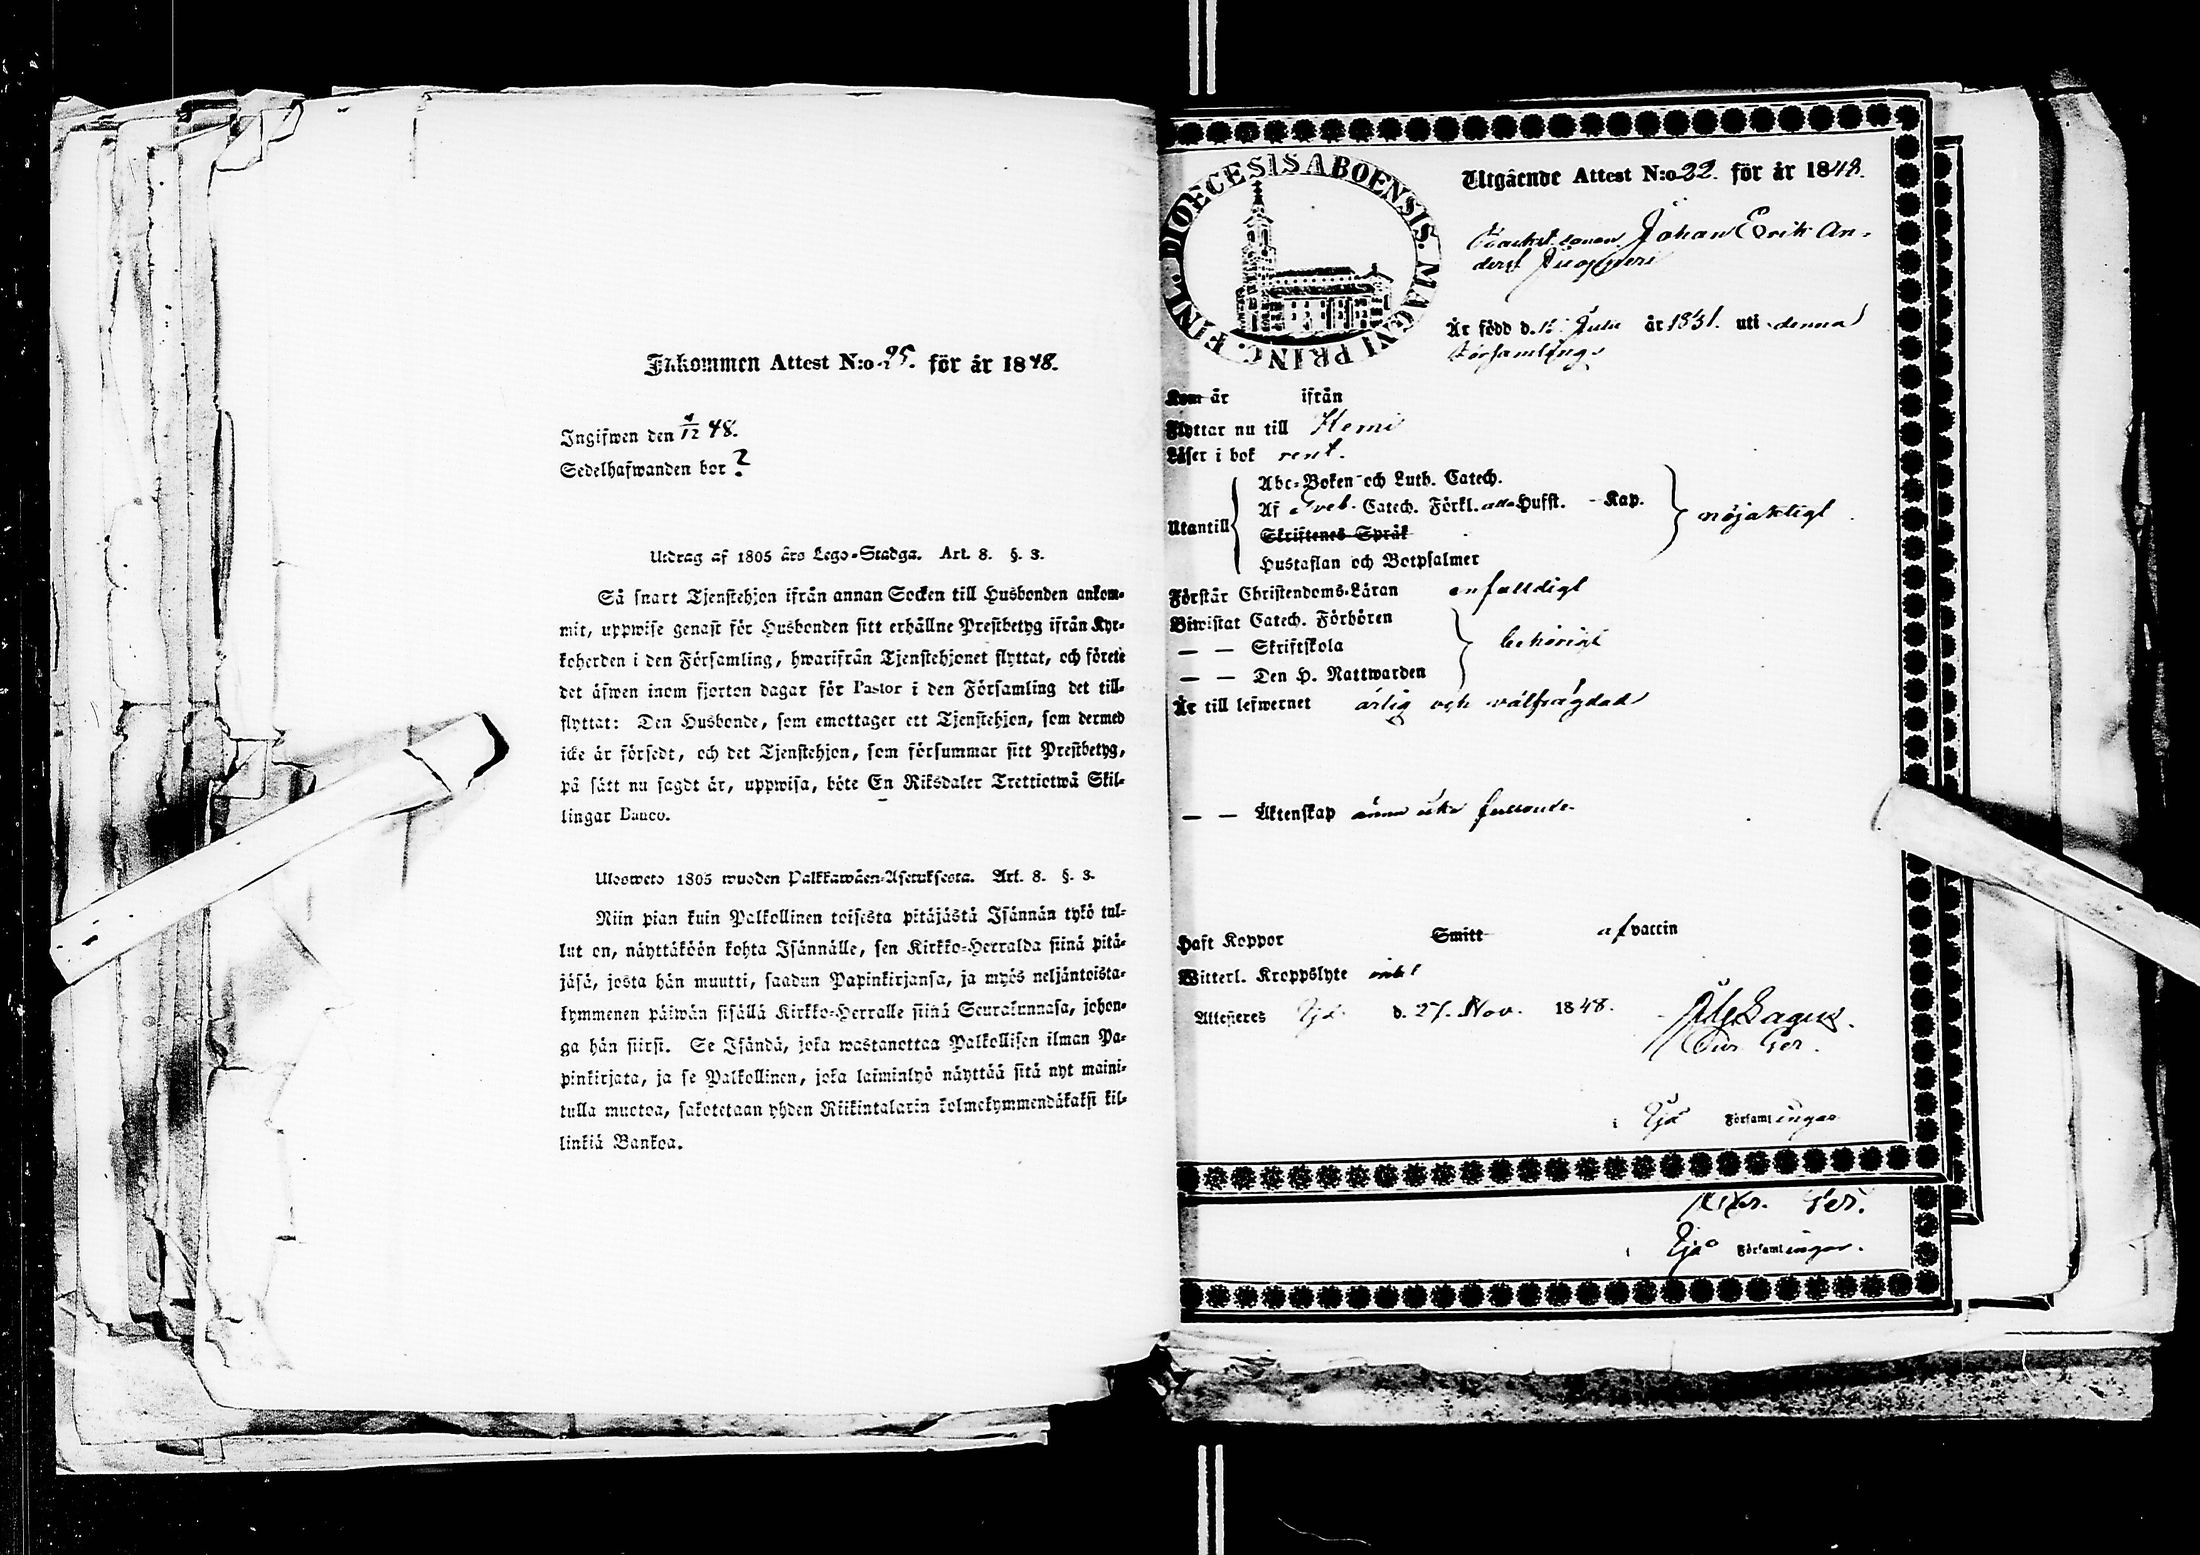 Inkommen Attest N:o 25. för år 1848.
Ingifwen den 4/12 48.
Sedelhafwanden bor ?
Utdrag af 1805 års Lego-Stadga. Art. 8. §. 3.
Så snart Tjenstehjon ifrån annan Socken till Husbonden ankom-
mit, uppwise genast för Husbonden sitt erhållne Prestbetyg ifrån Kyr-
koherden i den Församling, hwarifrån Tjenstehjonet flyttat, och förete
det äfwen inom fjorton dagar för Pastor i den Församling det till-
flyttat: Den Husbonde, som emottager ett Tjenstehjon, som dermed
icke är försedt, och det Tjenstehjon, som försummar sitt Prestbetyg,
på sätt nu sagdt är, uppwisa, böte En Riksdaler Trettiotwå Skil-
lingar Banco.
Ulosweto 1805 wuoden Palkkawäen-Asetuksesta. Art. 8. §. 3.
Niin pian kuin Palkollinen toisesta pitäjästä Isännän tykö tul-
lut on, näyttäköön kohta Isännälle, sen Kirkko-Herralda siinä pitä-
jäsä, josta hän muutti, saadun Papinkirjansa, ja myös neljäntoista-
kymmenen päiwän sisällä Kirkko-Herralle siinä Seurakunnasa, johon-
ga hän siirsi. Se Isändä, joka wastanottaa Palkollisen ilman Pa-
pinkirjata, ja se Palkollinen, joka laiminlyö näyttää sitä nyt maini-
tulla muotoa, sakotetaan yhden Riikintalarin kolmekymmendäkaksi kil-
linkiä Bankoa.
DIOECESIS ABOENSIS. MAGNI PRINC. FINL.
Utgående Attest N:o 22. för år 1848.
Johan Erik An-
ders
Är född d. Julii år 1831. uti denna
Församling
Kom år ifrån
Flyttar nu till Kemi
Läser i bok rent.
Abc-Boken och Luth. Catech.
Af Sveb. Catech. Förkl. alla Hufst. - Kap.
Utantill nöjaktigt
Skriftenes Språk
Hustaflan och Botpsalmer
Förstår Christendoms-Läran enfaldigt
Biwistat Catech. Förhören
— — Skriftskola behörigt
— — Den H. Nattwarden
Är till lefwernet ärlig och välfrägdad
— — Äktenskap ännu icke
Haft Koppor Smitt af vaccin
Witterl. Kroppslyte intet
Attesteras Ijo d. 27. Nov. 1848.
i Ijo Församlingar
i Ijo Församlingar.